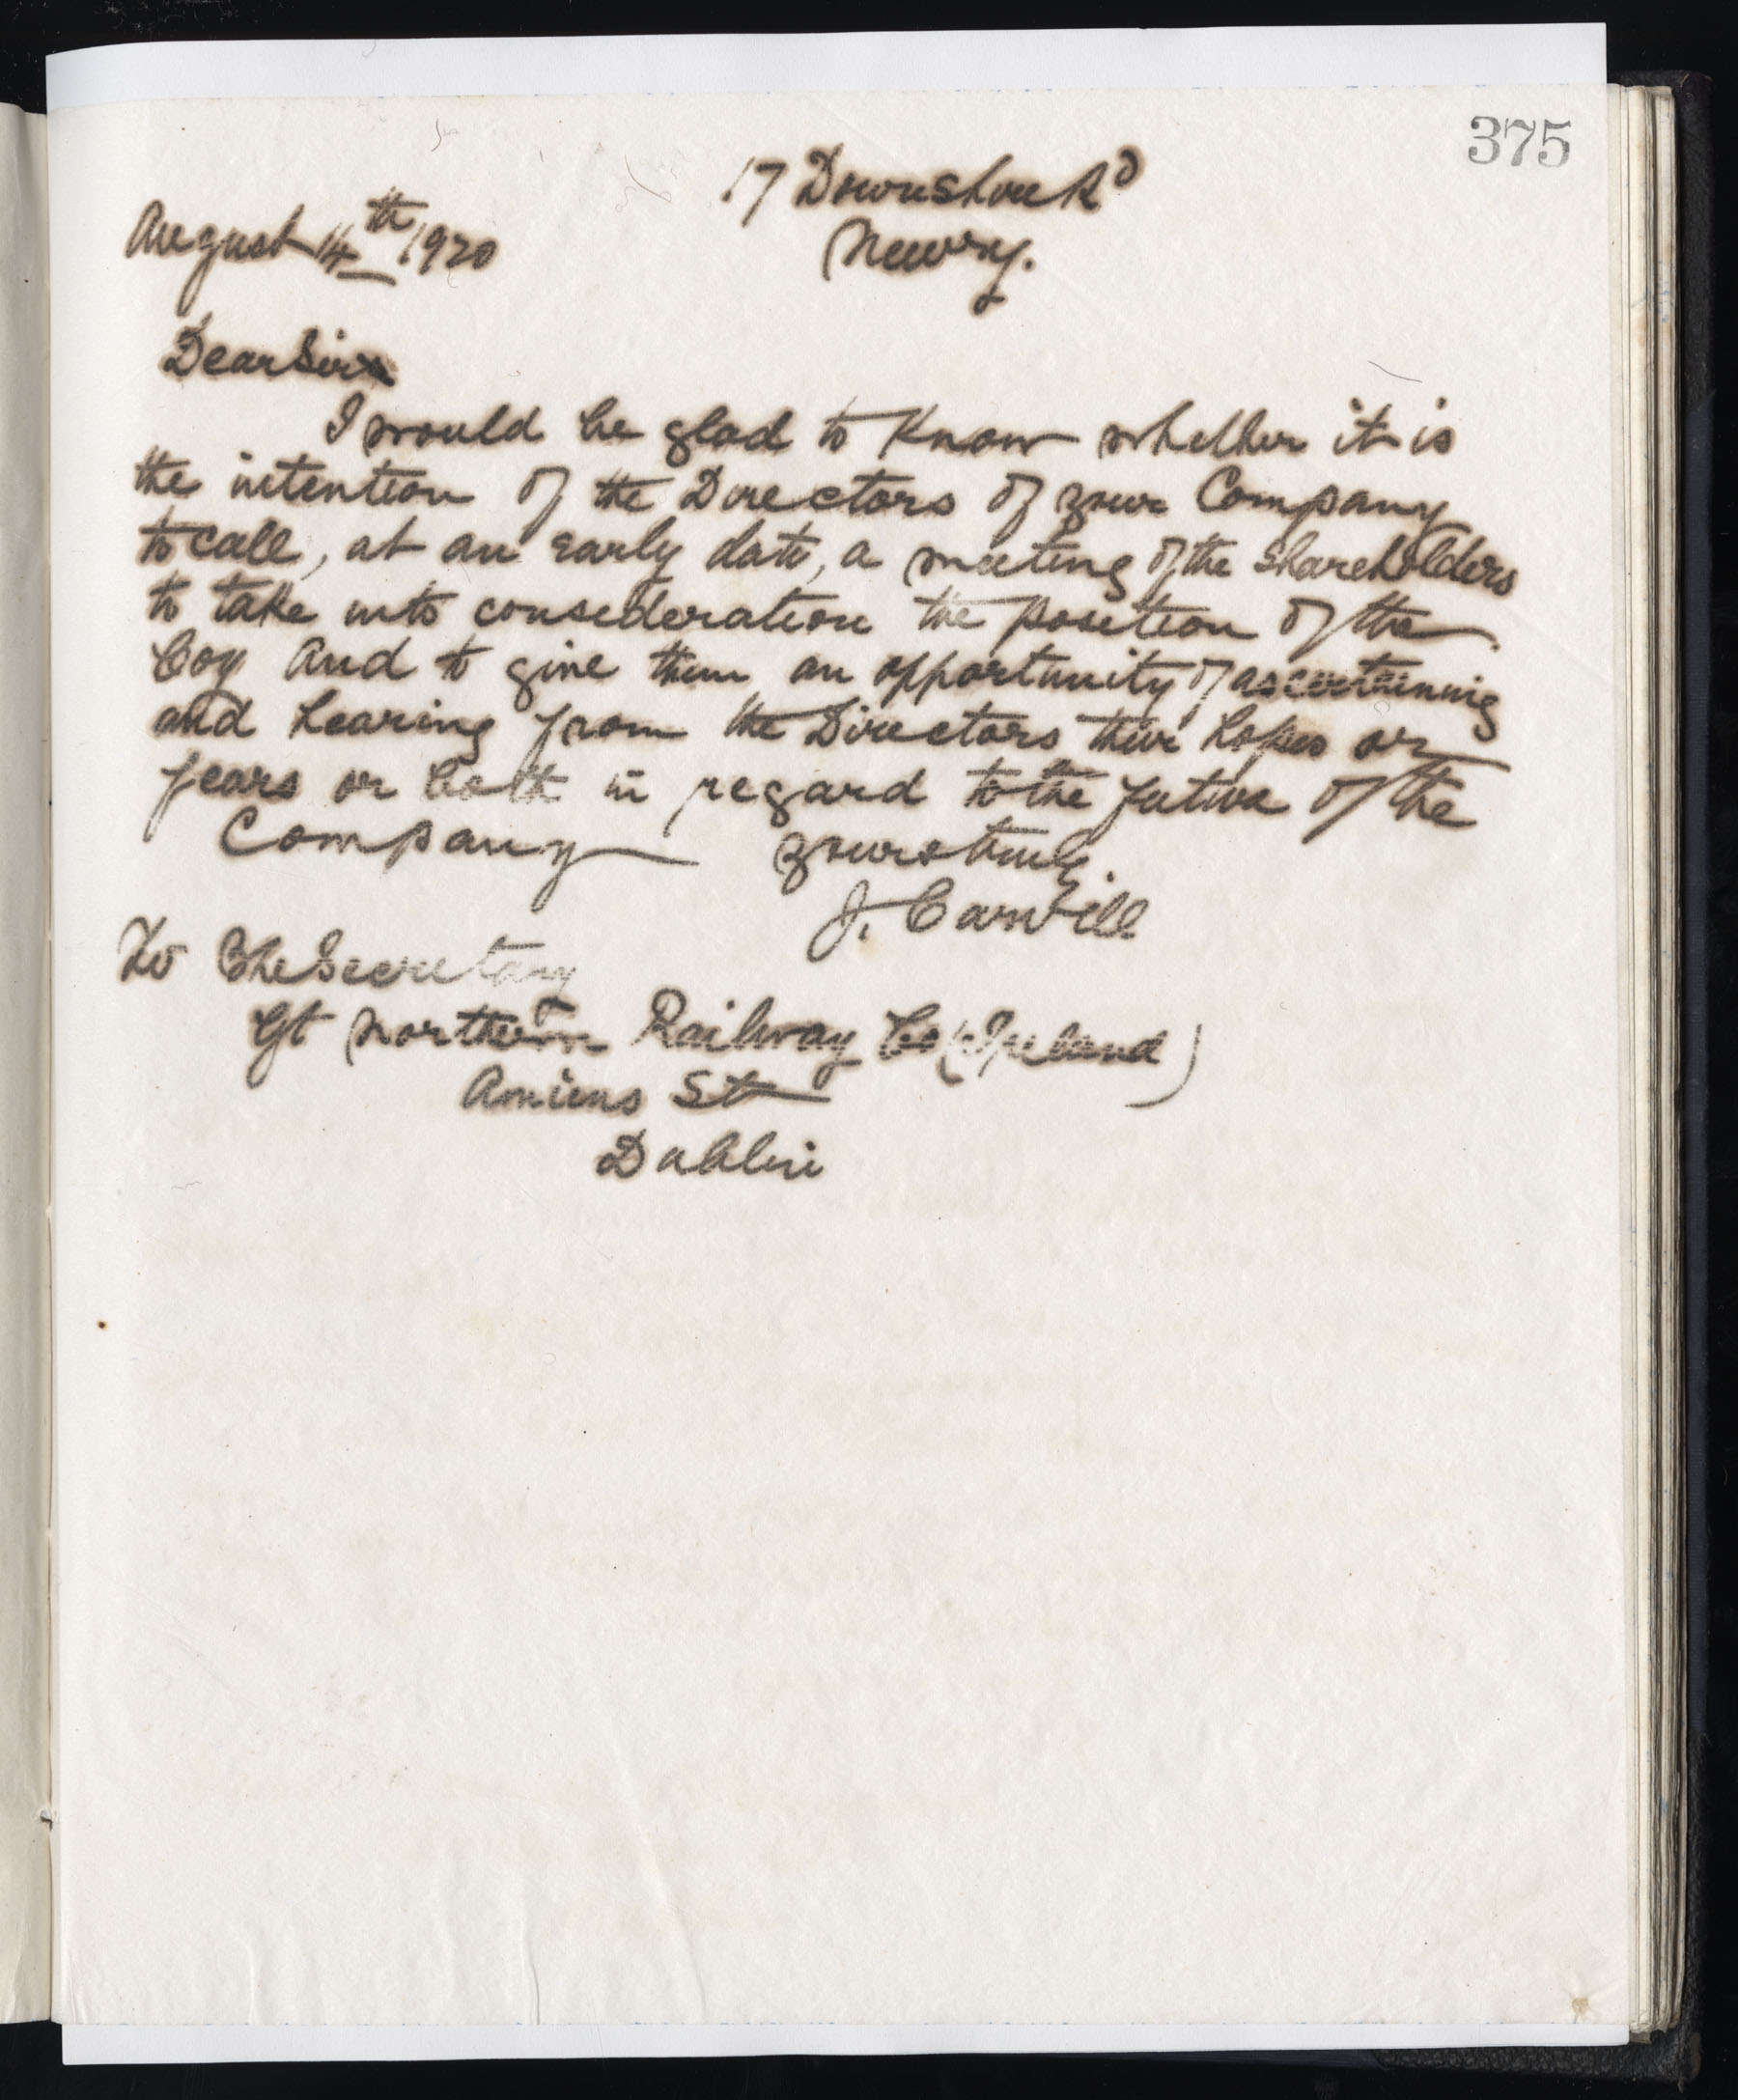 375
17 Downshire Rd
Newry.
August 14th 1920
Dear Sir
I would be glad to know whether it is
the intention of the Directors of your Company
to call, at an early date, a meeting of the shareholders
to take into consideration the position of the
Coy and to give them an opportunity of ascertaining
and hearing from the Directors their hopes or
fears or both in regard to the future of the
Company yours truly.
J. Carvill
To The Secretary
Gt Northern Railway Co (Ireland)
Amiens St
Dublin